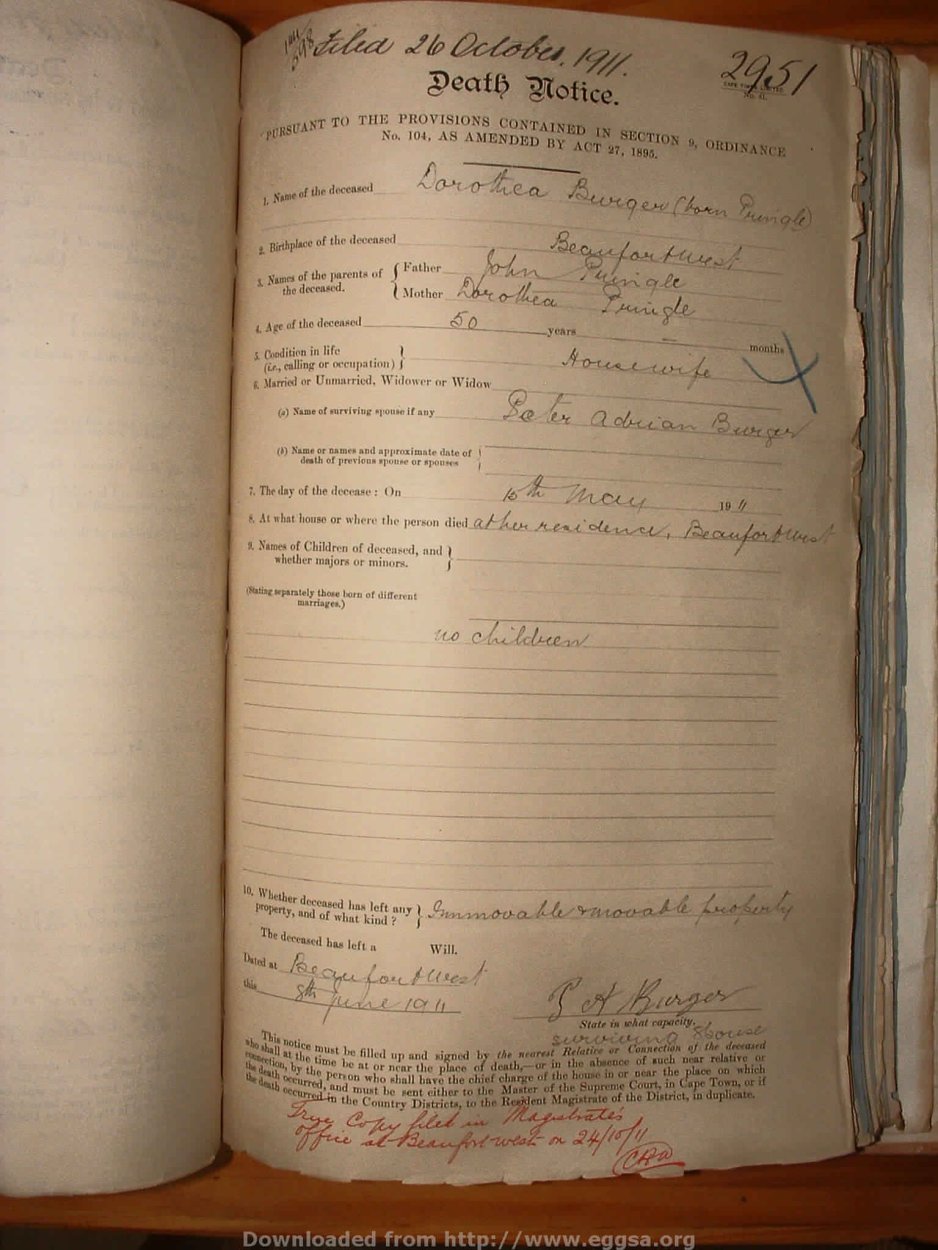 Filed 26 October, 1911.
2951
Death Notice.
PURSUANT TO THE PROVISIONS CONTAINED IN SECTION 9, ORDINANCE
No. 104, AS AMENDED BY ACT 27, 1895.
1. Name of the deceased Dorothea Burger (born Pringle)
2. Birthplace of the deceased Beaufort West
3. Names of the parents of the deceased. { Father John Pringle
Mother Dorothea Pringle
4. Age of the deceased 50 years — months
5. Condition in life
(i.e., calling or occupation) } Housewife
6. Married or Unmarried, Widower or Widow
(a) Name of surviving spouse if any Pieter Adrian Burger
(b) Name or names and approximate date of
death of previous spouse or spouses
7. The day of the decease: On 15th May 1911
8. At what house or where the person died at her residence, Beaufort West
9. Names of Children of deceased, and
whether majors or minors.
(Stating separately those born of different
marriages.)
no children
10. Whether deceased has left any
property, and of what kind? } Immovable & movable property
The deceased has left a Will.
Dated at Beaufort West
this 8th June 1911 P A Burger
State in what capacity.
surviving spouse
This notice must be filled up and signed by the nearest Relative or Connection of the deceased
who shall at the time be at or near the place of death,—or in the absence of such near relative or
connection, by the person who shall have the chief charge of the house in or near the place on which
the death occurred, and must be sent either to the Master of the Supreme Court, in Cape Town, or if
the death occurred in the Country Districts, to the Resident Magistrate of the District, in duplicate.
True Copy filed in Magistrate's
office at Beaufort West on 24/10/11
Downloaded from http://www.eggsa.org